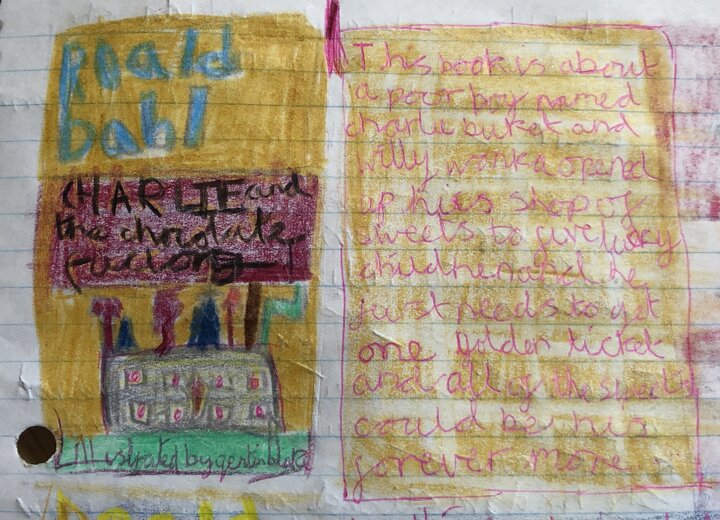 Roald
Dahl
CHARLIE and
the chocolate
factory
Illustrated by qentin blake
This book is about
a poor boy named
charlie buket and
willy wonka opend
up his shop of
sweets to give lucky
children and he
just needs to get
one golden ticket
and all of the sweets
could be his
forever more